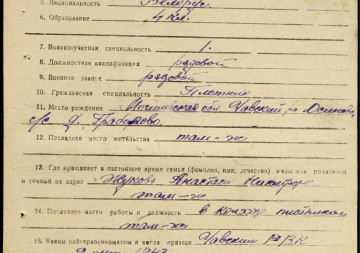 5. Национальность Белорус
6. Образование 4 кл.
7. Военно-учетная специальность 1.
8. Должностная квалификация рядовой
9. Военное звание рядовой
10. Гражданская специальность Плотник
11. Место рождения Могилевская обл Чавский р-н
с/с д.
12. Последнее место жительства там-ж
13. Где проживает в настоящее время семья (фамилия, имя, отчество) жены или родителей
и точный их адрес Жукова Анастас Никифор
там-ж
14. Последнее место работы и должность в колхозе плотником
там-ж
15. Каким райгорвоенкоматом и когда призван Чавским РВК